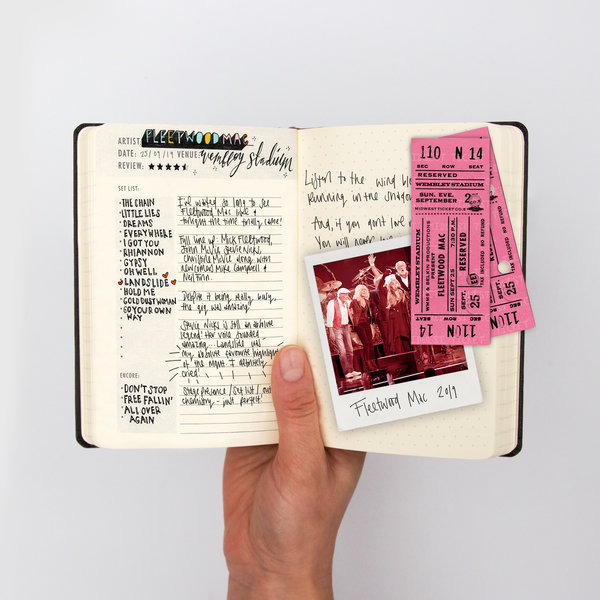 ARTIST: FLEETWOOD MAC
DATE: 25/09/19 VENUE: wembley stadium
REVIEW: ★★★★★
SET LIST:
· THE CHAIN
· LITTLE LIES
· DREAMS
· EVERYWHERE
· I GOT YOU
· RHIANNON
· GYPSY
· OH WELL
· LANDSLIDE
· HOLD ME
· GOLD DUST WOMAN
· GO YOUR OWN
WAY
ENCORE:
· DON'T STOP
· 'FREE FALLIN'
· 'ALL OVER
AGAIN
I've waited so long to see
Fleetwood Mac live &
tonight the time finally came!
Full line up: Mick Fleetwood,
John McVie, Stevie Nicks,
Christine McVie along with
newcomers Mike Campbell &
Neil Finn.
Despite it being really busy,
the gig was amazing!
Stevie Nicks is still an absolute
legend! Her voice sounded
amazing... Landslide was
My absolute favourite highlight
of the night. I definitely
cried!
Stage presence / set list /
chemistry - just perfect!
Listen to the wind
Running in the
And, if you don't love
You will
Fleetwood Mac 2019
110 N 14
SEC ROW SEAT
RESERVED
WEMBLEY STADIUM
SUN. EVE.
SEPTEMBER
MIDWESTTICKET CO.
WEMBLEY STADIUM
WNMS & BELKIN PRODUCTIONS
PRESENT
FLEETWOOD MAC
SUN SEPT 25 7:30 P.M.
RESERVED
SEPT. 25
TAX INCLUDED NO REFUND
14 N 110
SEAT ROW SEC
SEPT. 25
TAX INCLUDED NO REFUND
110